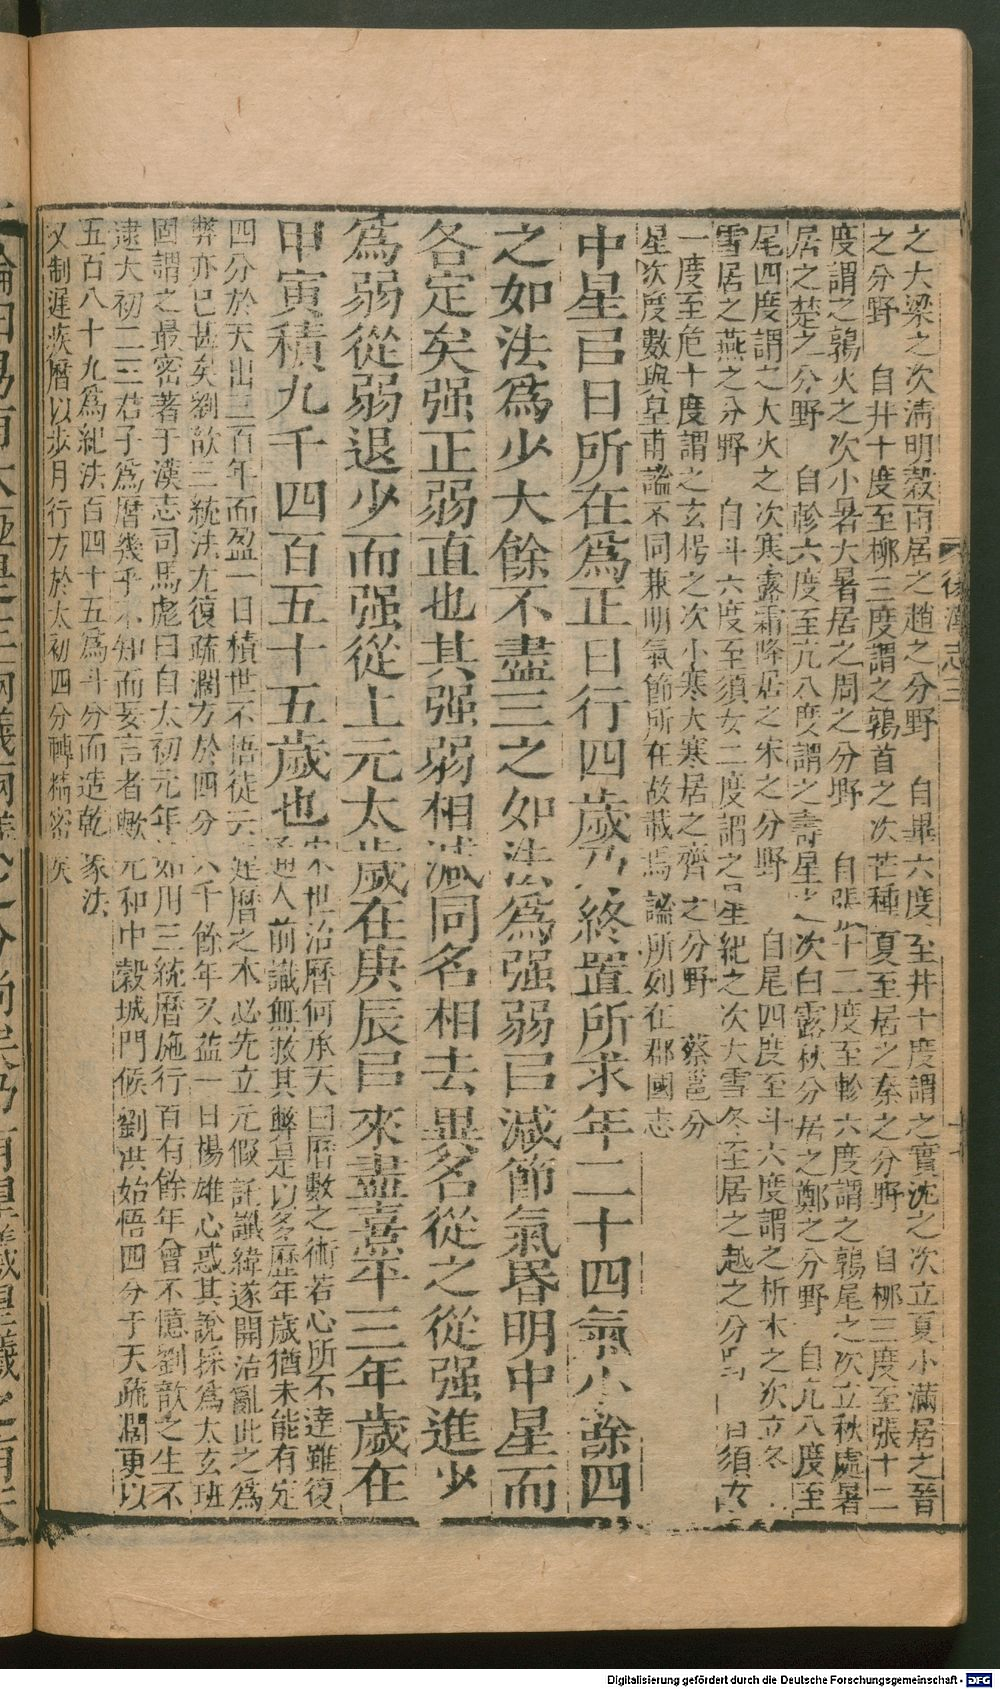 之大梁之次清明穀雨居之趙之分野　自畢六度至井十度謂之實沈之次立夏小滿居之晉
之分野　自井十度至柳三度謂之鶉首之次芒種夏至居之秦之分野　自柳三度至張十二
度謂之鶉火之次小暑大暑居之周之分野　自張十二度至軫六度謂之鶉尾之次立秋處暑
居之楚之分野　自軫六度至亢八度謂之壽星之次白露秋分居之鄭之分野　自亢八度至
尾四度謂之大火之次寒露霜降居之宋之分野　自尾四度至斗六度謂之析木之次立冬
雪居之燕之分野　自斗六度至須女二度謂之星紀之次大雪冬至居之越之分　須女
一度至危十度謂之玄枵之次小寒大寒居之齊之分野　蔡邕分
星次度數與皇甫謐不同兼明氣節所在故載焉謐所列在郡國志
中星㠯日所在爲正日行四歲乃終置所求年二十四氣小餘四
之如法爲少大餘不盡三之如法爲强弱㠯減節氣昏明中星而
各定矣强正弱直也其强弱相減同名相去異名從之從强進少
爲弱從弱退少而强從上元太歲在庚辰㠯來盡熹平三年歲在
甲寅積九千四百五十五歲也
宋世治曆何承天曰曆數之術若心所不達雖復
通人前識無救其弊是以多歷年歲猶未能有定
四分於天出三百年而盈一日積世不悟徒云
建曆之本必先立元假託讖緯遂開治亂此之爲
弊亦已甚矣劉歆三統法尤復疏濶方於四分
六千餘年又益一日楊雄心惑其說採爲太玄班
固謂之最密著于漢志司馬彪曰自太初元年
始用三統曆施行百有餘年曾不憶劉歆之生不
逮太初二三君子爲曆幾乎不知而妄言者歟
元和中穀城門候劉洪始悟四分于天疏濶更以
五百八十九爲紀法百四十五爲斗分而造乾
象法
又制遲疾曆以步月行方於太初四分轉精密
矣
後漢志三
Digitalisierung gefördert durch die Deutsche Forschungsgemeinschaft - DFG